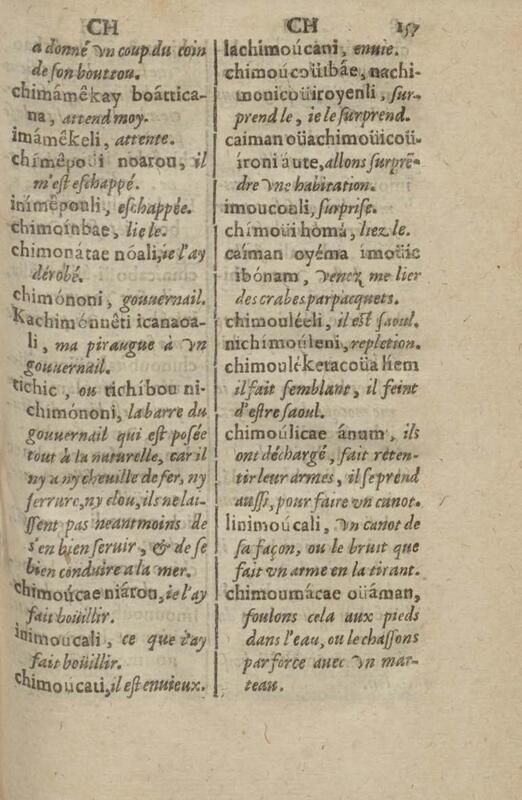 CH
CH
157
a donné vn coup du coin
de son bouttou.
chimámêkay boáttica-
na, attend moy.
imámêkeli, attente.
chimêpoui noarou, il
m'est eschappé.
inimêpouli, eschappée.
chimoinbae, lie le.
chimonátae nóali, ie l'ay
dérobé.
chimónoni, gouuernail.
Kachimónnêti icanaoa-
li, ma piraugue à vn
gouuernail.
tichic, ou tichíbou ni-
chimónoni, la barre du
gouuernail qui est posée
tout à la naturelle, car il
n'y a ny cheuille de fer, ny
ferrure, ny clou, ils ne lais-
sent pas neantmoins de
s'en bien seruir, & de se
bien conduire a la mer.
chimoúcae niárou, ie l'ay
fait boüillir.
inimoucali, ce que i'ay
fait boüillir.
chimoucati, il est enuieux.
lachimoúcani, enuie.
chimoúcoüibâe, nachi-
monicoüiroyenli, sur-
prend le, ie le surprend.
caiman oüachimoüicoü-
ironi áute, allons surprê-
dre vne habitation.
imoucouli, surprise.
chímoüi homá, liez le.
caíman oyéma imoüic
ibónam, venez me lier
des crabes par pacquets.
chimouléeli, il est saoul.
nichimoúleni, repletion.
chimouléketacoüa liem
il fait semblant, il feint
d'estre saoul.
chimoúlicae ánum, ils
ont déchargé, fait reten-
tir leur armes, il se prend
aussi, pour faire vn canot.
linimoúcali, vn canot de
sa façon, ou le bruit que
fait vn arme en la tirant.
chimoumácae oüáman,
foulons cela aux pieds
dans l'eau, ou le chassons
par force auec vn mar-
teau.